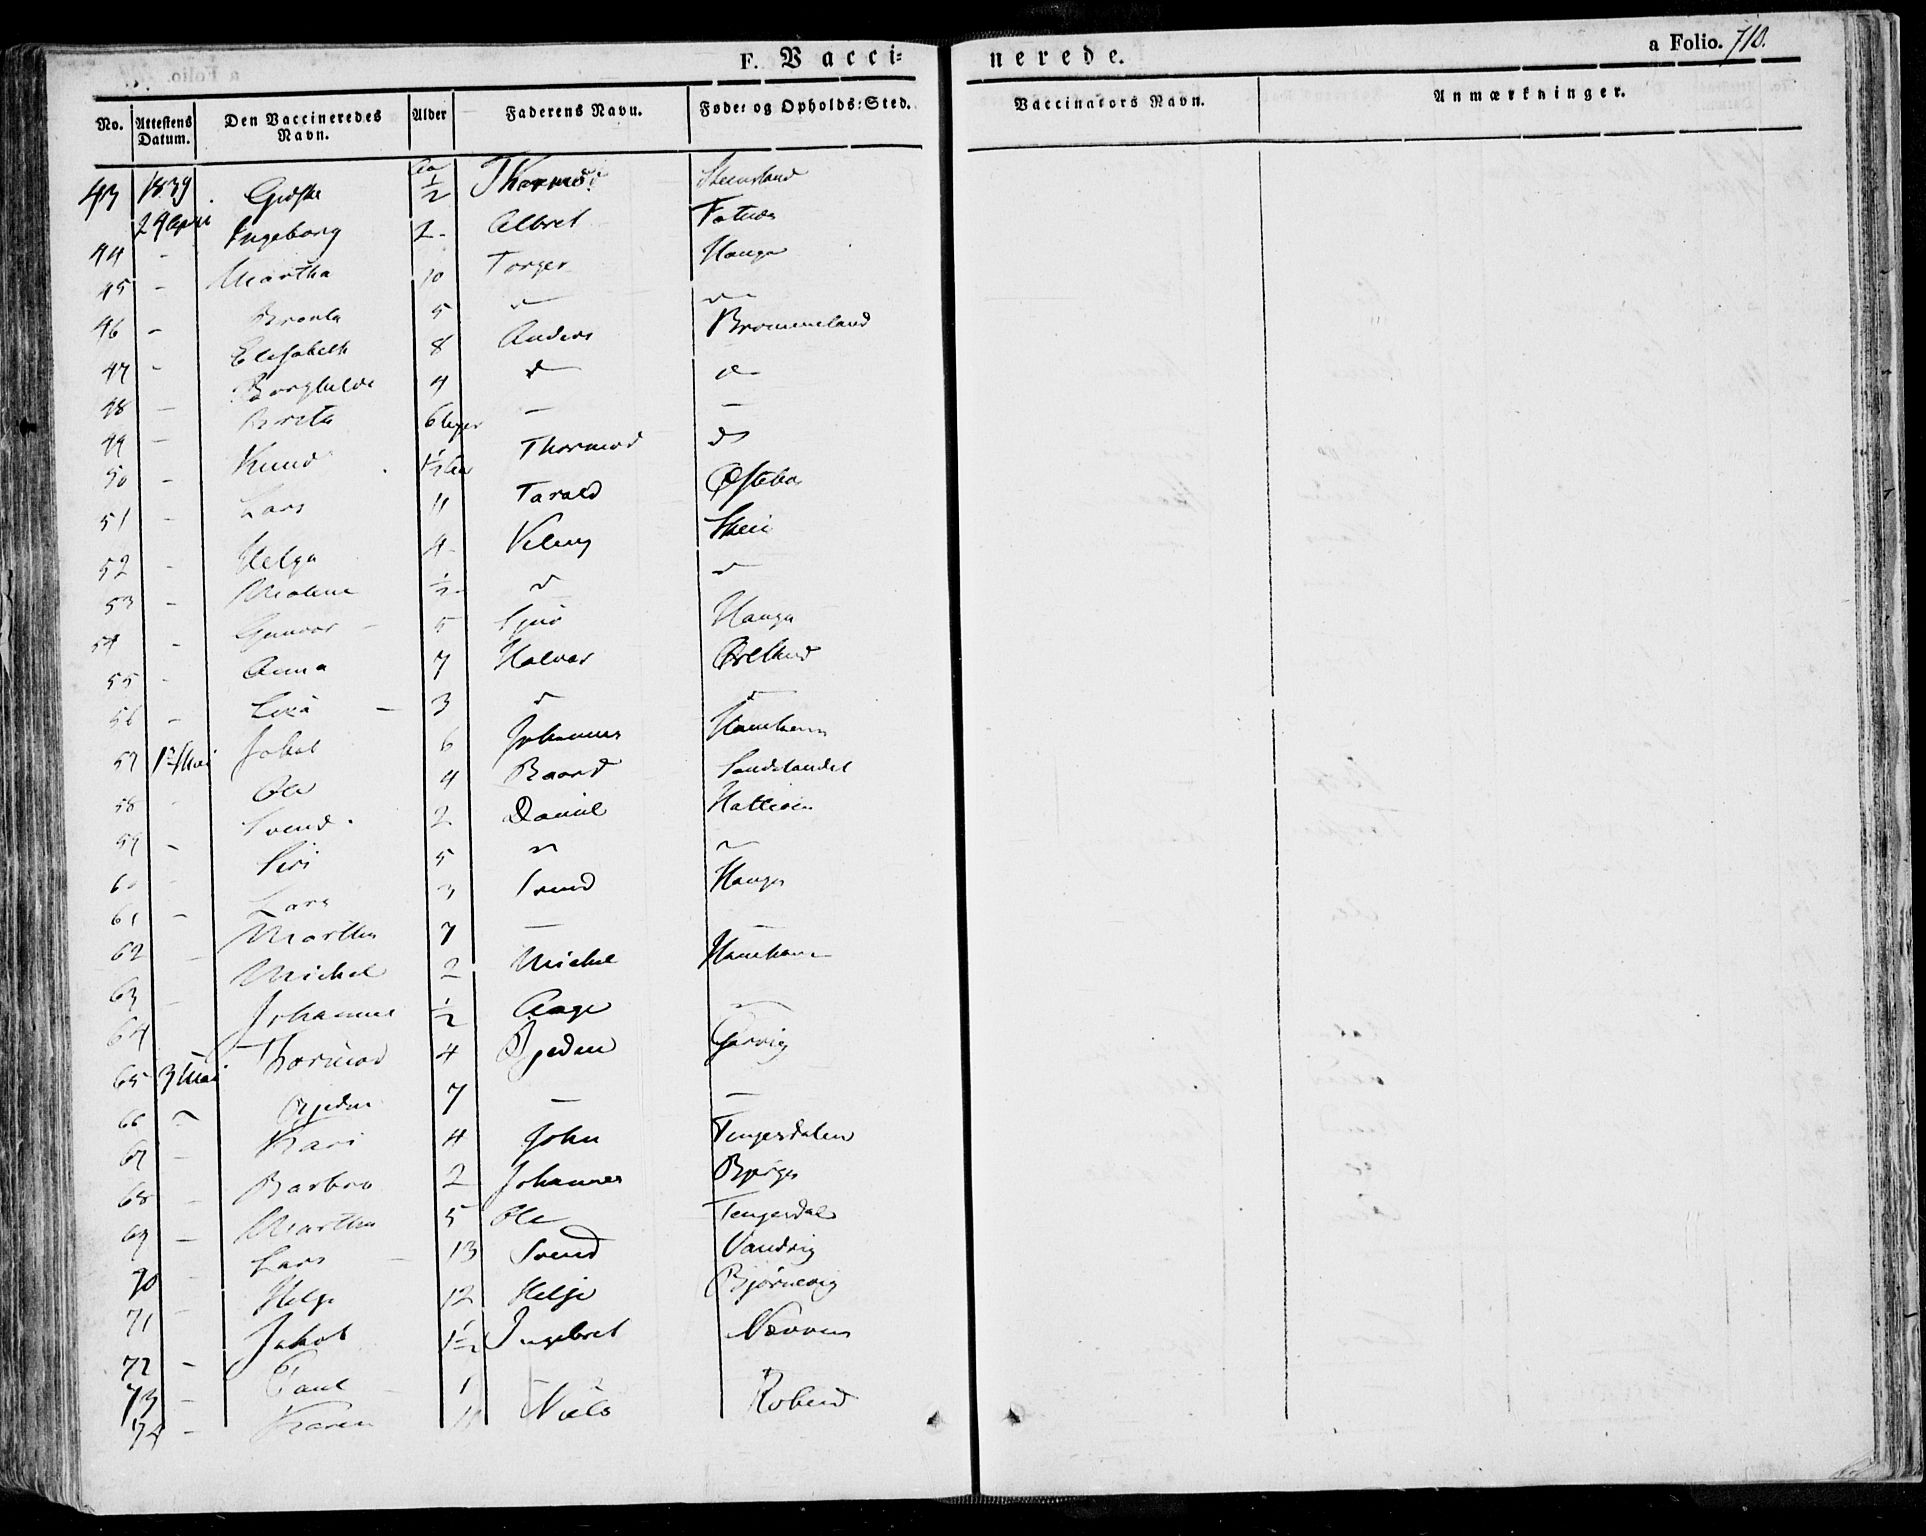 F. Vacci=
nerede.
a Folio. 710.
No. Attestens Datum. Den Vaccineredes Navn. Alder Faderens Navn. Føde= og Opholds=Sted. Vaccinators Navn. Anmærkninger.
43 1839 29 April Giøske Aar 1/2 Thormod Steensland
44 - Ingeborg 2 - Albret Fatnes
45 - Martha 10 Torger Hauge
46 - Breta 5 d d
47 - Elisabeth 8 Anders Brommeland
48 - Borghilde 4 d d
49 - Breta 6 Uger - -
50 - Knud 1 1/2 Aar Thormod d
51 - Lars 11 Tarald Østebø
52 - Helga 4 - Stein
53 - Malene 1/2 d d
54 - Gunvor - 5 Hauga
55 - Anna 7 Halvor
56 - - 3 d d
57 12 Mai Jakob 6 Johannes
58 - Ole 4 Baard Landstandet
59 - Svend 2 Daniel
60 - Siri 5 " "
61 - Lars 3 Svend Hauge
62 - Martha 7 - -
63 - Michel 2 Michel
64 Johannes 1/2 Aage "
65 3 Mai Thormod 4 Gjedne Garvig
66 " Gjedne 7 - -
67 - Kari 4 John Tengesdalen
68 - Barbro 2 Johannes Bjørge
69 - Martha 5 Ole Tengesdal
70 - Lars - 13 Svend Vandvig
71 - Helge 12 Helje Bjørnevig
72 - Jakob 1 1/2 Ingebret
73 - Paul - 1
74 - Karen 11 Niels